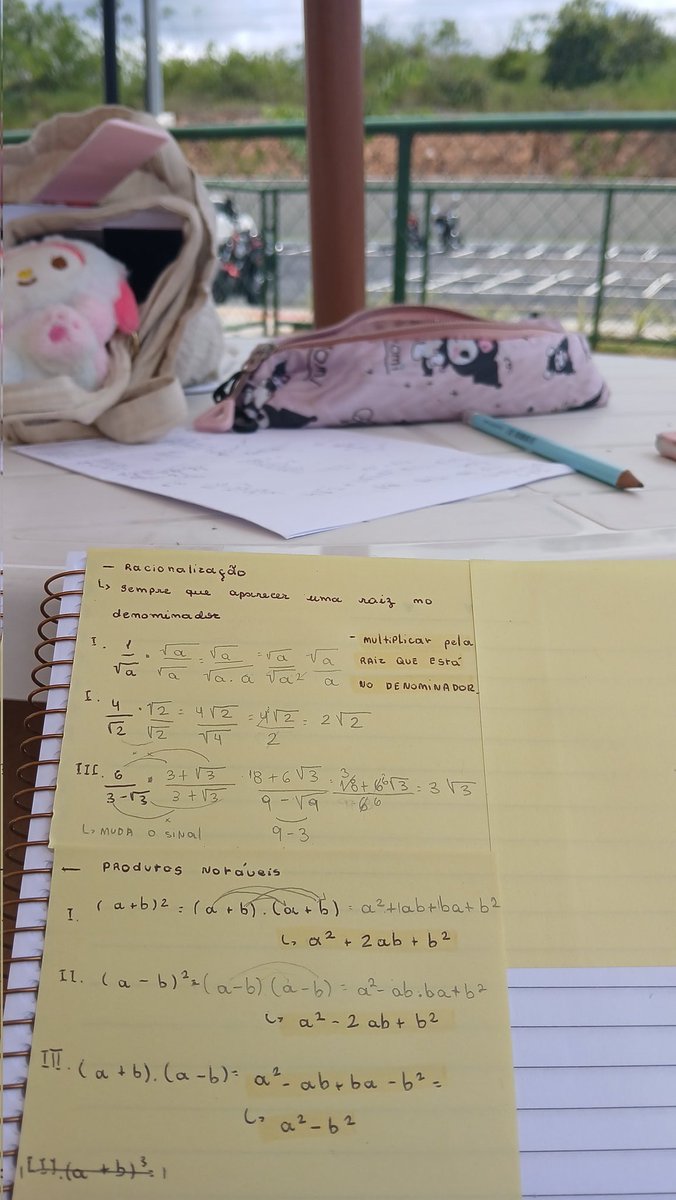 — Racionalização
↳ Sempre que aparecer uma raiz no
denominador
I. 1/√a · √a/√a = √a/√a.a = √a/√a² √a/a
- MULTIPLICAR pela
RAIZ QUE ESTÁ
NO DENOMINADOR.
I. 4/√2 · √2/√2 = 4√2/√4 = 4√2/2 = 2√2
III. 6/3-√3 · 3+√3/3+√3 18+6√3/9-√9 = 3√3
9-3
↳ MUDA O SINAL
— PRODUTOS NOTÁVEIS
I. (a+b)² = (a+b).(a+b) = a²+1ab+1ba+b²
↳ a² + 2ab + b²
II. (a-b)² = (a-b)(a-b) = a²-ab-ba+b²
↳ a² - 2ab + b²
III. (a+b).(a-b) = a² - ab + ba - b² =
↳ a² - b²
(a+b)³ =